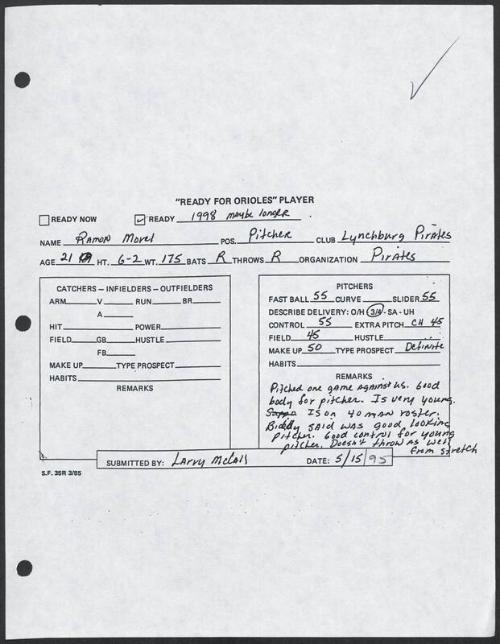 "READY FOR ORIOLES" PLAYER
READY NOW READY 1998 maybe longer
NAME Ramon Morel POS. Pitcher CLUB Lynchburg Pirates
AGE 21 HT. 6-2 WT. 175 BATS R THROWS R ORGANIZATION Pirates
CATCHERS – INFIELDERS – OUTFIELDERS
ARM V RUN BR
A
HIT POWER
FIELD GB HUSTLE
FB
MAKE UP TYPE PROSPECT
HABITS
REMARKS
PITCHERS
FAST BALL 55 CURVE SLIDER 55
DESCRIBE DELIVERY: O/H 3/4 - SA - UH
CONTROL 55 EXTRA PITCH CH 45
FIELD 45 HUSTLE
MAKE UP 50 TYPE PROSPECT Definite
HABITS
REMARKS
Pitched one game against us. Good
body for pitcher. Is very young.
Is on 40 man roster.
said was good looking
pitcher. Good control for young
pitcher. Doesn't throw as well
from stretch
SUBMITTED BY: Larry McCall DATE: 5/15/95
S.F. 35R 3/85